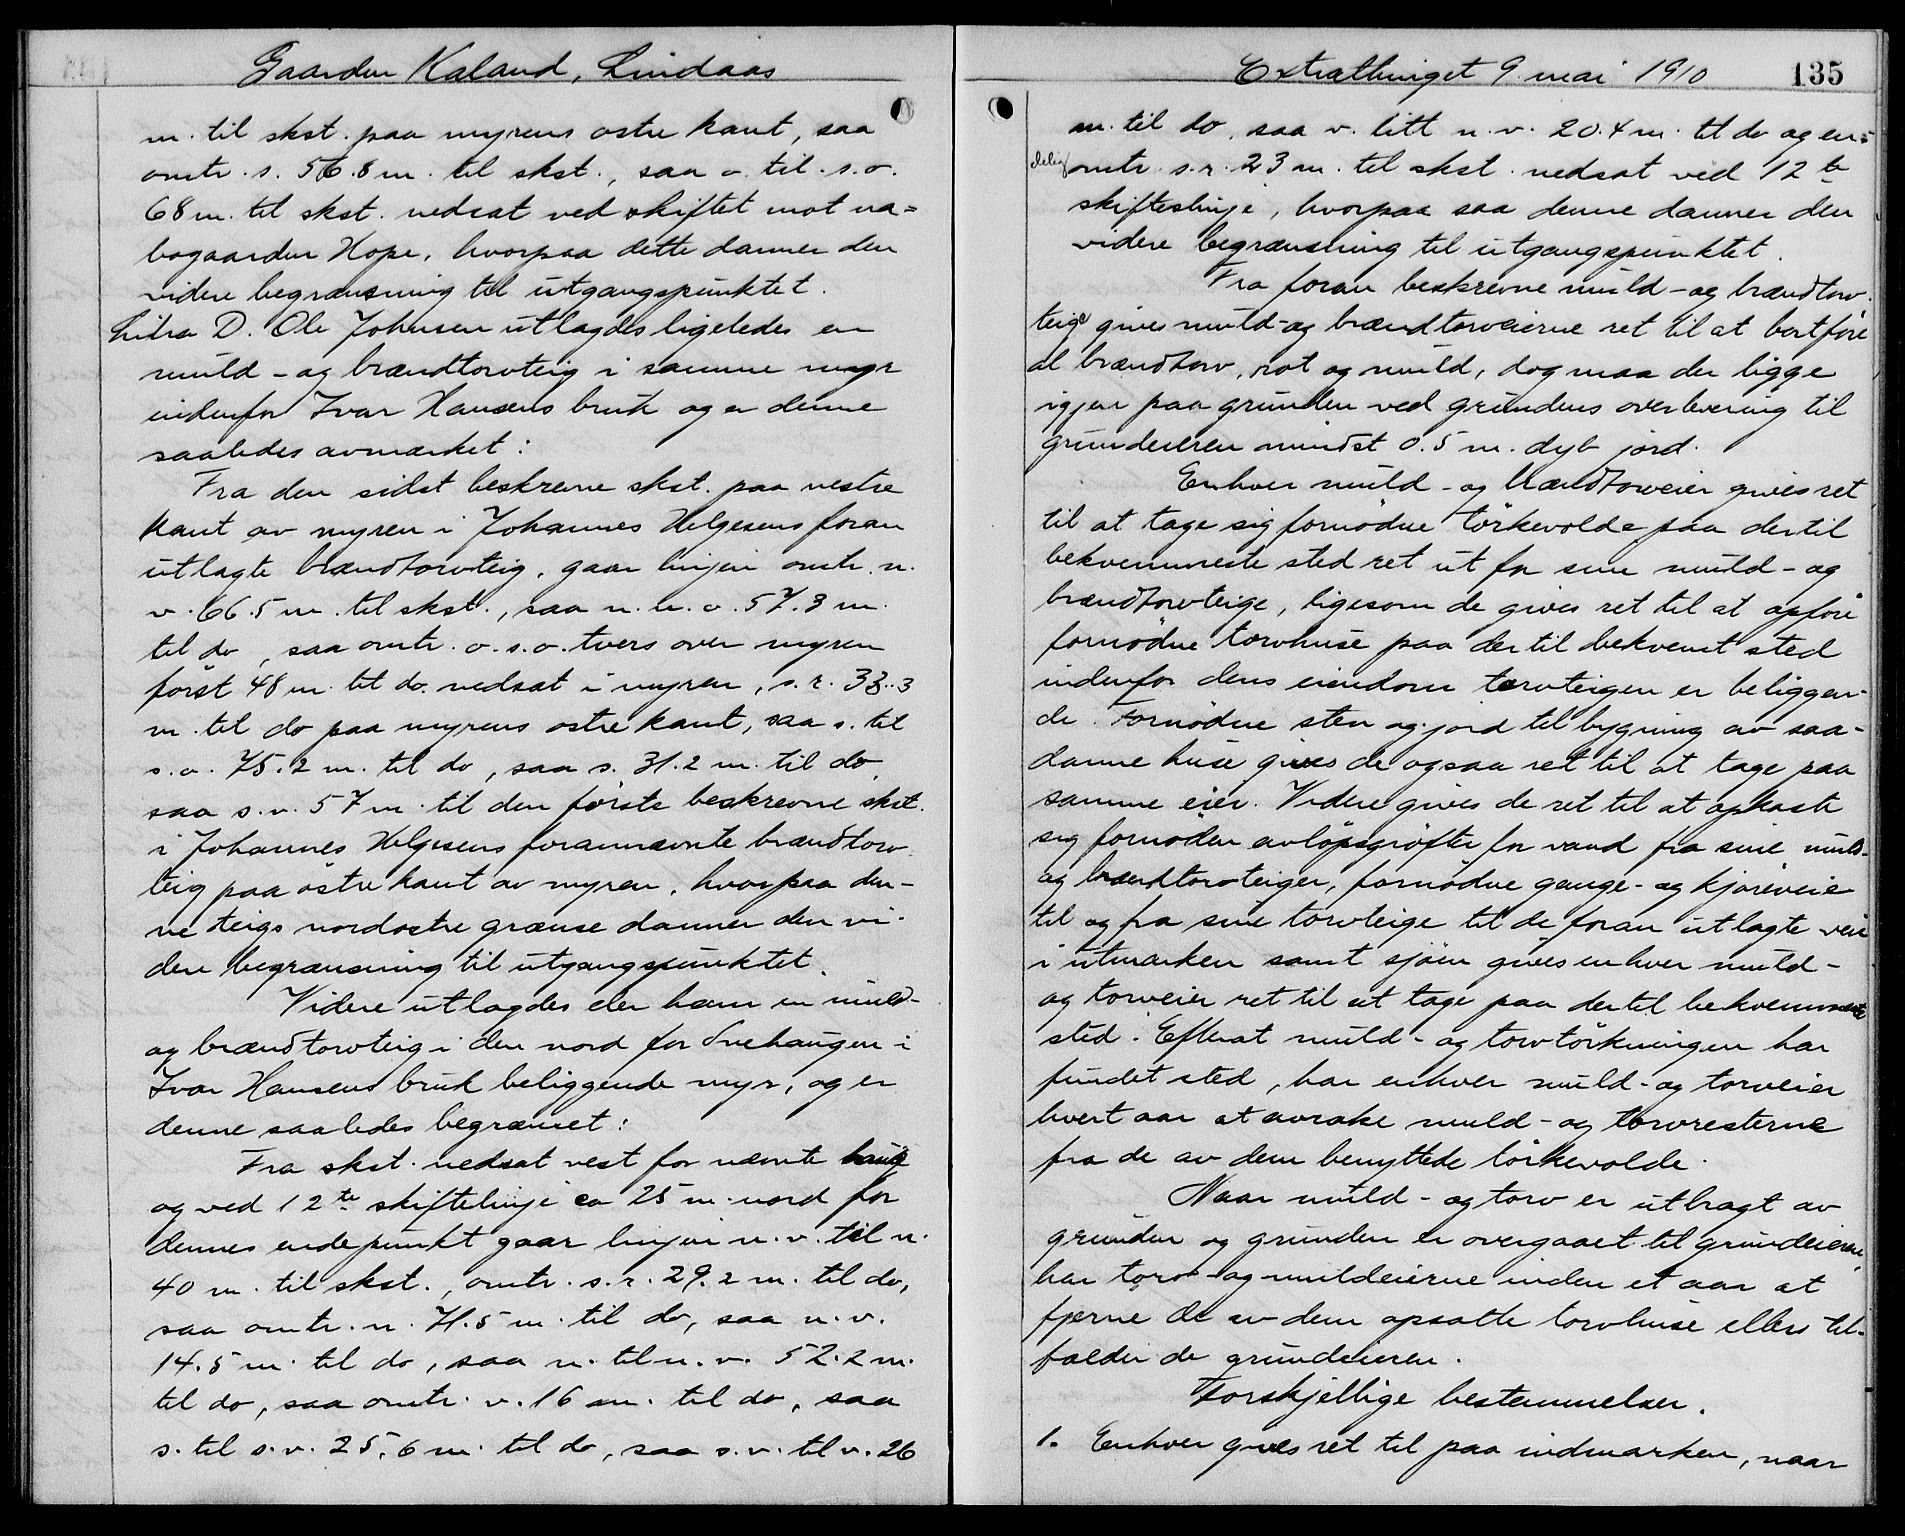 Gaarden Kaland, Lindaas
m. til skst. paa myrens ostre kant, saa
omtr. s. 56.8 m. til skst., saa o. til s.o.
68 m. til skst. nedsat ved skiftet mot na=
bogaarden Hope, hvorpaa dette danner den
videre begrænsning til utgangspunktet.
Litra D. Ole Johnsen utlagdes ligeledes en
muld- og brændtorvteig i samme myr
indenfor Ivar Hansens bruk og er denne
saaledes avmærket:
Fra den sidst beskrevne skst. paa vestre
kant av myren i Johannes Helgesens foran
utlagte brændtorvteig, gaar linjen omtr. n.
v. 66.5 m. til skst., saa n.n.o. 57.3 m.
til do, saa omtr. o.s.o. tvers over myren
først 48 m. til do. nedsat i myren, s.r. 33.3
m. til do paa myrens ostre kant, saa s. til
s.o. 75.2 m. til do, saa s. 31.2 m. til do,
saa s.v. 57 m. til den første beskrevne skst.
i Johannes Helgesens forannævnte brændtorv
teig paa østre kant av myren, hvorpaa den-
ne teigs nordostre grænse danner den vi-
dere begrænsning til utgangspunktet.
Videre utlagdes der ham en muld-
og brændtorvteig i den nord for Snehaugen i
Ivar Hansens bruk beliggende myr, og er
denne saaledes begrænset:
Fra skst. nedsat vest for nævnte haug
og ved 12te skiftelinje ca 25 m. nord for
dennes endepunkt gaar linjen n.v. til n.
40 m. til skst., omtr. s.r. 29.2 m. til do,
saa omtr. n. 71.5 m. til do, saa n.v.
14.5 m. til do, saa n. til n.v. 52.2 m.
til do, saa omtr. v. 16 m. til do, saa
s. til s.v. 25.6 m. til do, saa s.v. til v. 26
Extrathinget 9. mai 1910 135
m. til do, saa v. litt n.v. 20.4 m. til do og en=
delig omtr. s.r. 23 m. til skst. nedsat ved 12te
skifteslinje, hvorpaa saa denne danner den
videre begrænsning til utgangspunktet.
Fra foran beskrevne muld- og brændtorv
teige gives muld- og brændtorveierne ret til at bortføre
al brændtorv, rot og muld, dog maa der ligge
igjen paa grunden ved grundens overlevering til
grundeieren mindst 0.5 m. dyb jord.
Enhver muld- og brændtorveier gives ret
til at tage sig fornødne tørkevolde paa dertil
bekvemmeste sted ret ut for sine muld- og
brændtorvteige, ligesom de gives ret til at opføre
fornødne torvhuse paa der til bekvemt sted
indenfor dens eiendom torvteigen er beliggen-
de. Fornødne sten og jord til bygning av saa-
danne huse gives de ogsaa ret til at tage paa
samme eier. Videre gives de ret til at opkaste
sig fornøden avløpsgrøfter for vand fra sine muld-
og brændtorvteiger, fornødne gange- og kjøreveie
til og fra sine torvteige til de foran utlagte veie
i utmarken samt sjøen gives enhver muld-
og torveier ret til at tage paa dertil bekvemmeste
sted. Efterat muld- og torvtørkningen har
fundet sted, har enhver muld- og torveier
hvert aar at avrake muld- og torvresterne
fra de av dem benyttede tørkevolde.
Naar muld- og torv er utbragt av
grunden og grunden er overgaaet til grundeieren,
har torv- og muldeierne inden et aar at
fjerne de av dem opsatte torvhuse ellers til-
falder de grundeieren.
Forskjellige bestemmelser.
1. Enhver gives ret til paa indmarken, naar